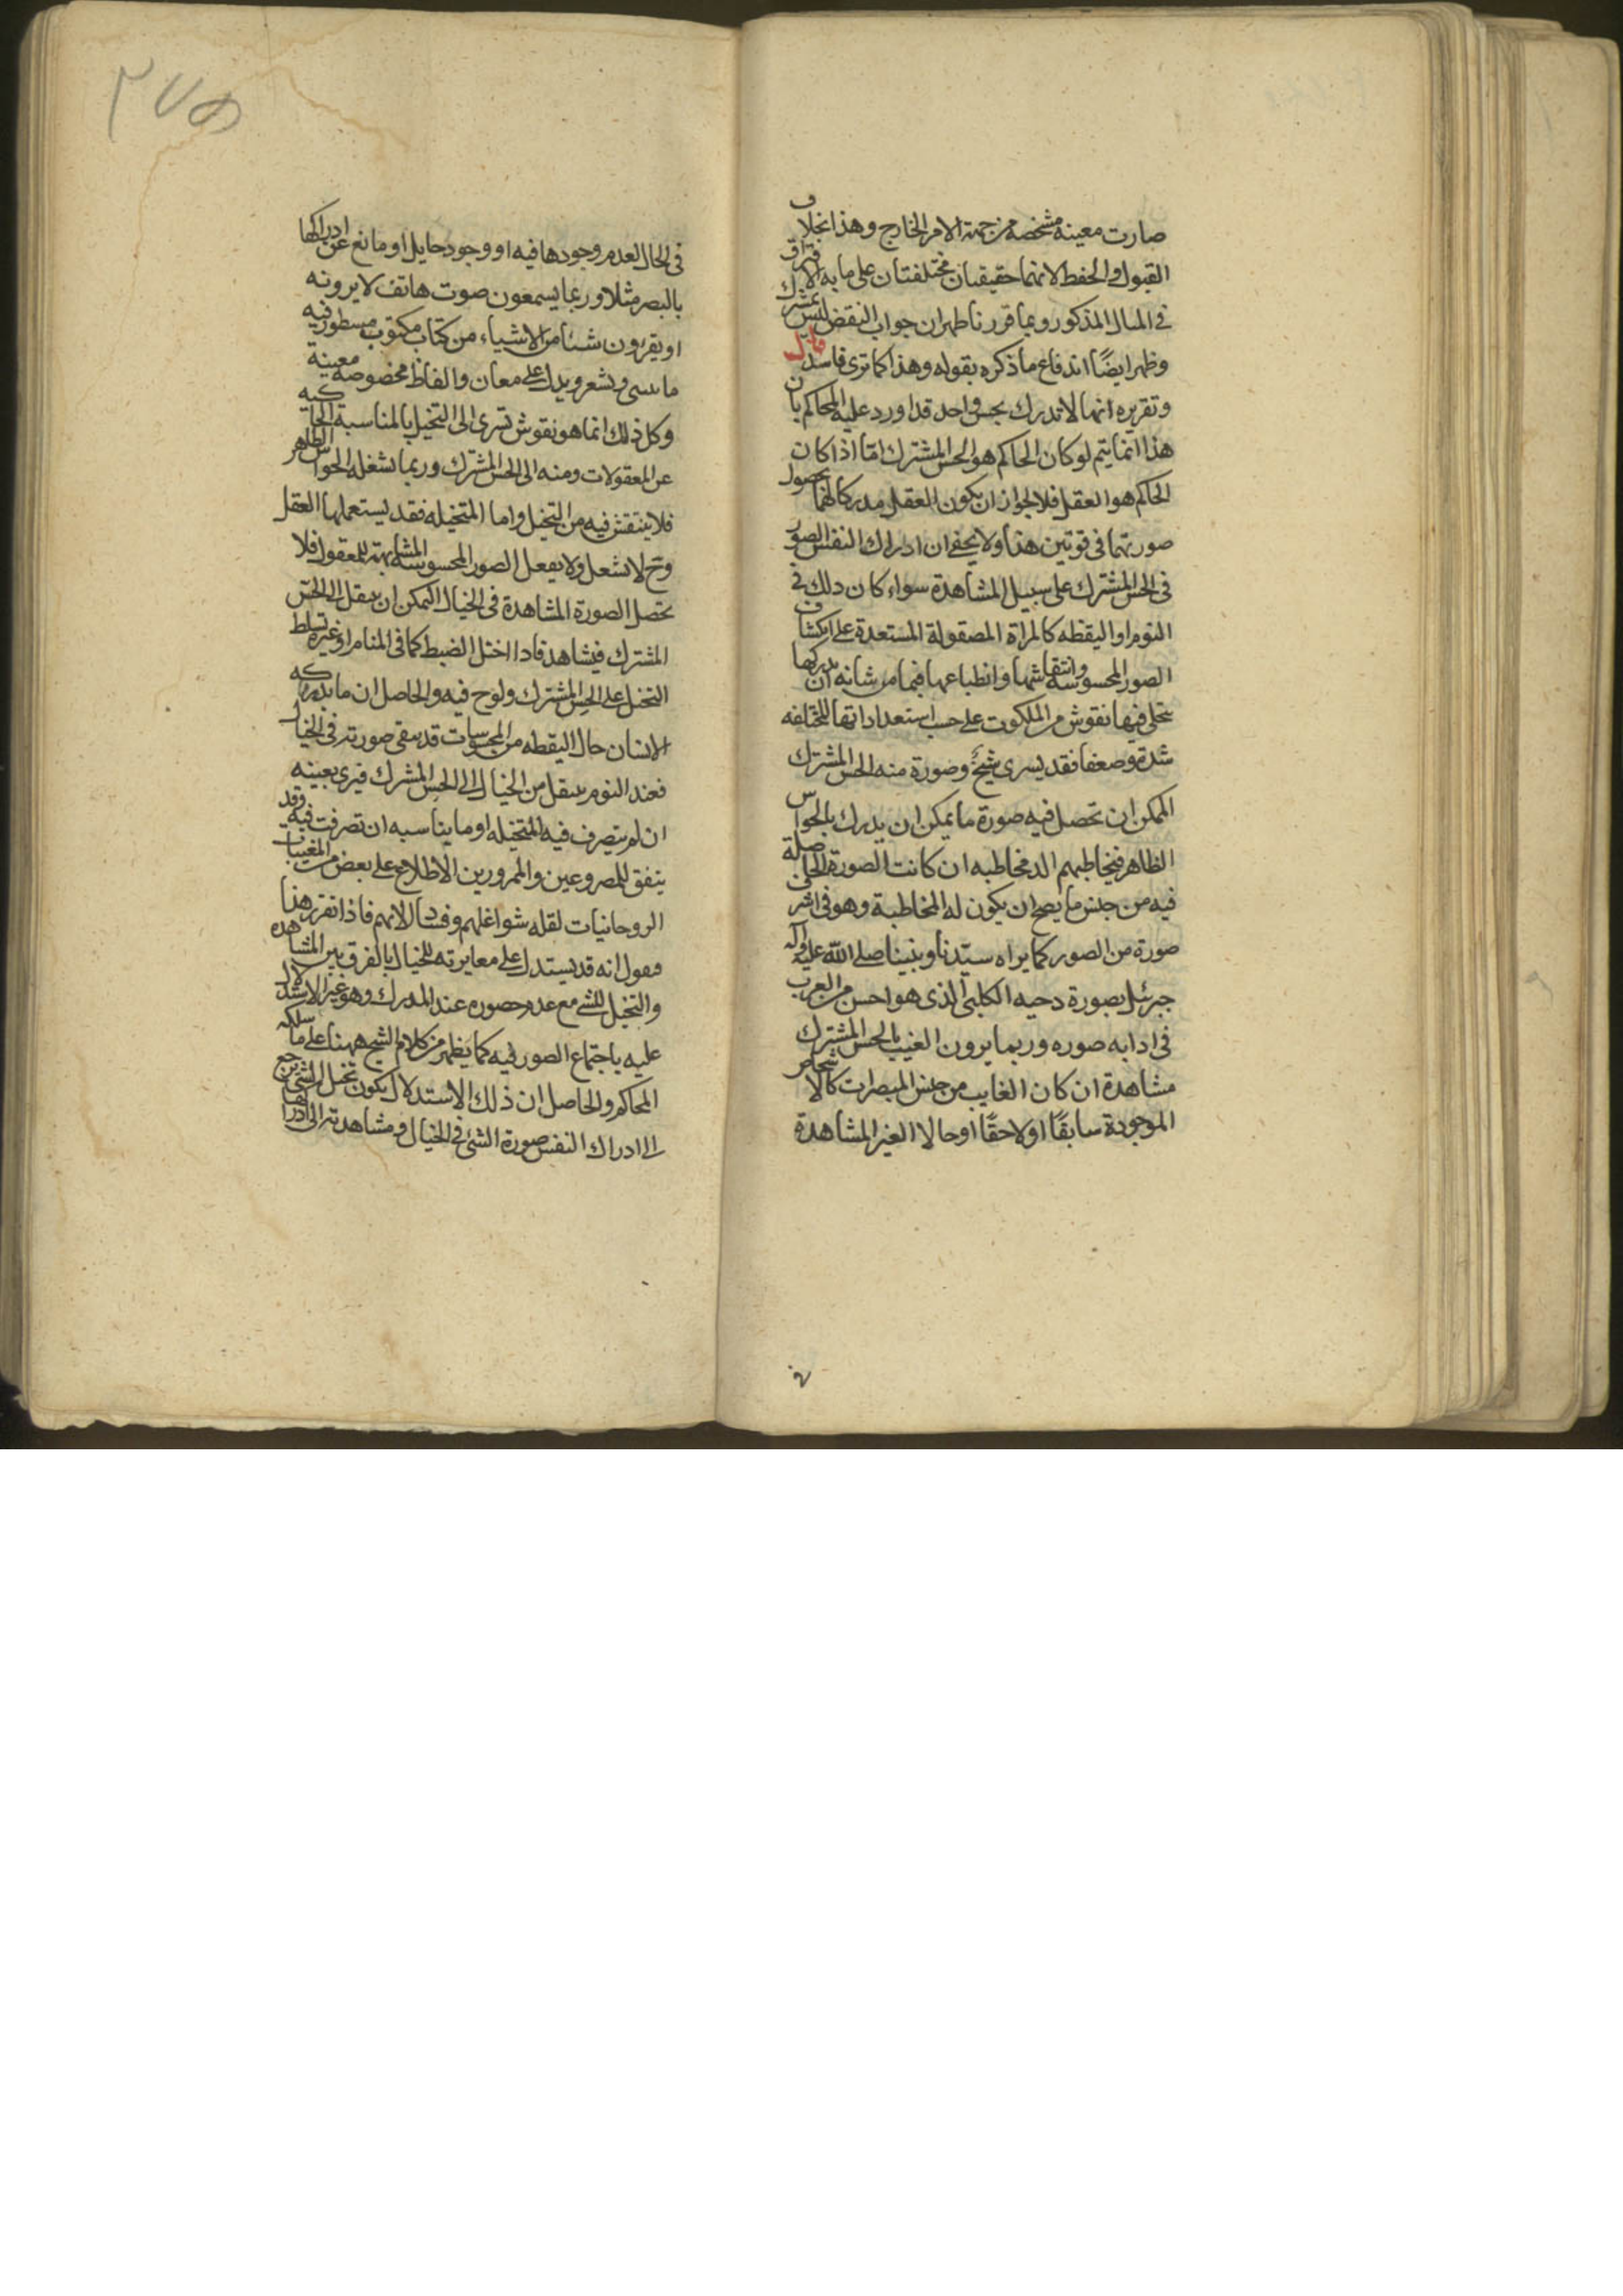 صارت معينه مشخصه من جهة الامر الخارج وهذا بخلاف
القبول والحفظ لانهما حقيقتان مختلفتان على ما به الافتراق
في المثال المذكور وبما قررنا ظهر ان جواب النقض ليس
وظهر ايضًا اندفاع ما ذكره بقوله وهذا كما ترى فاسد قال
وتقريره انها لا تدرك بحس واحد قد اورد عليه المحاكم بان
هذا انما يتم لو كان الحاكم هو الحس المشترك امّا اذا كان
الحاكم هو العقل فلا لجواز ان يكون العقل مدركا لهما بحصول
صورتهما في قوتين هذا ولا يخفى ان ادراك النفس الصور
في الحس المشترك على سبيل المشاهدة سواء كان ذلك في
النوم او اليقظه كالمراة المصقولة المستعدة على انكشاف
الصور المحسوسه وانتقاشها وانطباعها فيما من شانه ان يدركها
تتجلى فيها نقوش من الملكوت على حسب استعداداتها المختلفه
شدة وضعفا فقد يسرى شبح وصورة منه الحس المشترك
الممكن ان تحصل فيه صورة ما يمكن ان يدرك بالحواس
الظاهر فيخاطبهم الد مخاطبه ان كانت الصورة الحاصلة
فيه من جنس ما يصح ان يكون له المخاطبة وهو في اشرف
صورة من الصور كما يراه سيّدنا ونبينا صلى الله عليه وآله
جبرئيل بصورة دحيه الكلبي الذى هو احسن من العرب
في ادابه صوره وربما يرون الغيب بالحس المشترك
مشاهدة ان كان الغايب من جنس المبصرات كالاشخاص
الموجودة سابقًا او لاحقًا او حالا الغير المشاهدة
في
٣٧٥
في الحال لعدم وجودها فيه او وجود حايل او مانع عن ادراكها
بالبصر مثلا وربما يسمعون صوت هاتف لا يرونه
او يقرءون شيئا من الاشياء من كتاب مكتوب مسطور فيه
ويشعر ويدل على معان والفاظ مخصوصه معينة
وكل ذلك انما هو نقوش تسرى الى التخيل بالمناسبة الحاكيه
عن المعقولات ومنه الى الحس المشترك وربما تشغله الحواس الظاهر
فلا ينتقش فيه من التخيل واما المتخيله فقد يستعملها العقل
وح لا تشعل ولا يفعل الصور المحسوسه المشابهة للمعقول فلا
تحصل الصورة المشاهدة في الخيال الممكن ان ينتقل الى الحس
المشترك فيشاهد فاذا اختل الضبط كما في المنام او غيره تسلط
التخيل على الحس المشترك ولوح فيه والحاصل ان ما يدركه
الانسان حال اليقظه من المحسوسات قد يبقى صورته في الخيال
فعند النوم ينتقل من الخيال الى الحس المشترك فيرى بعينه
ان لم يتصرف فيه المتخيله او ما يناسبه ان تصرفت فيه وقد
يتفق للمصروعين والممرورين الاطلاع على بعض من المغيبات
الروحانيات لقله شواغلهم وفساد الاتهم فاذا تقرر هذا
فنقول انه قد يستدل على مغايرته للخيال بالفرق بين المشاهده
والتخيل للشئ مع عدم حضوره عند المدرك وهو غير الاستدلال
عليه باجتماع الصور فيه كما يظهر من كلام الشيخ ههنا على ما سلكه
المحاكم والحاصل ان ذلك الاستدلال يكون تخيل الشئ يرجع
الى ادراك النفس صورة الشئ في الخيال ومشاهدته الى ادراكها